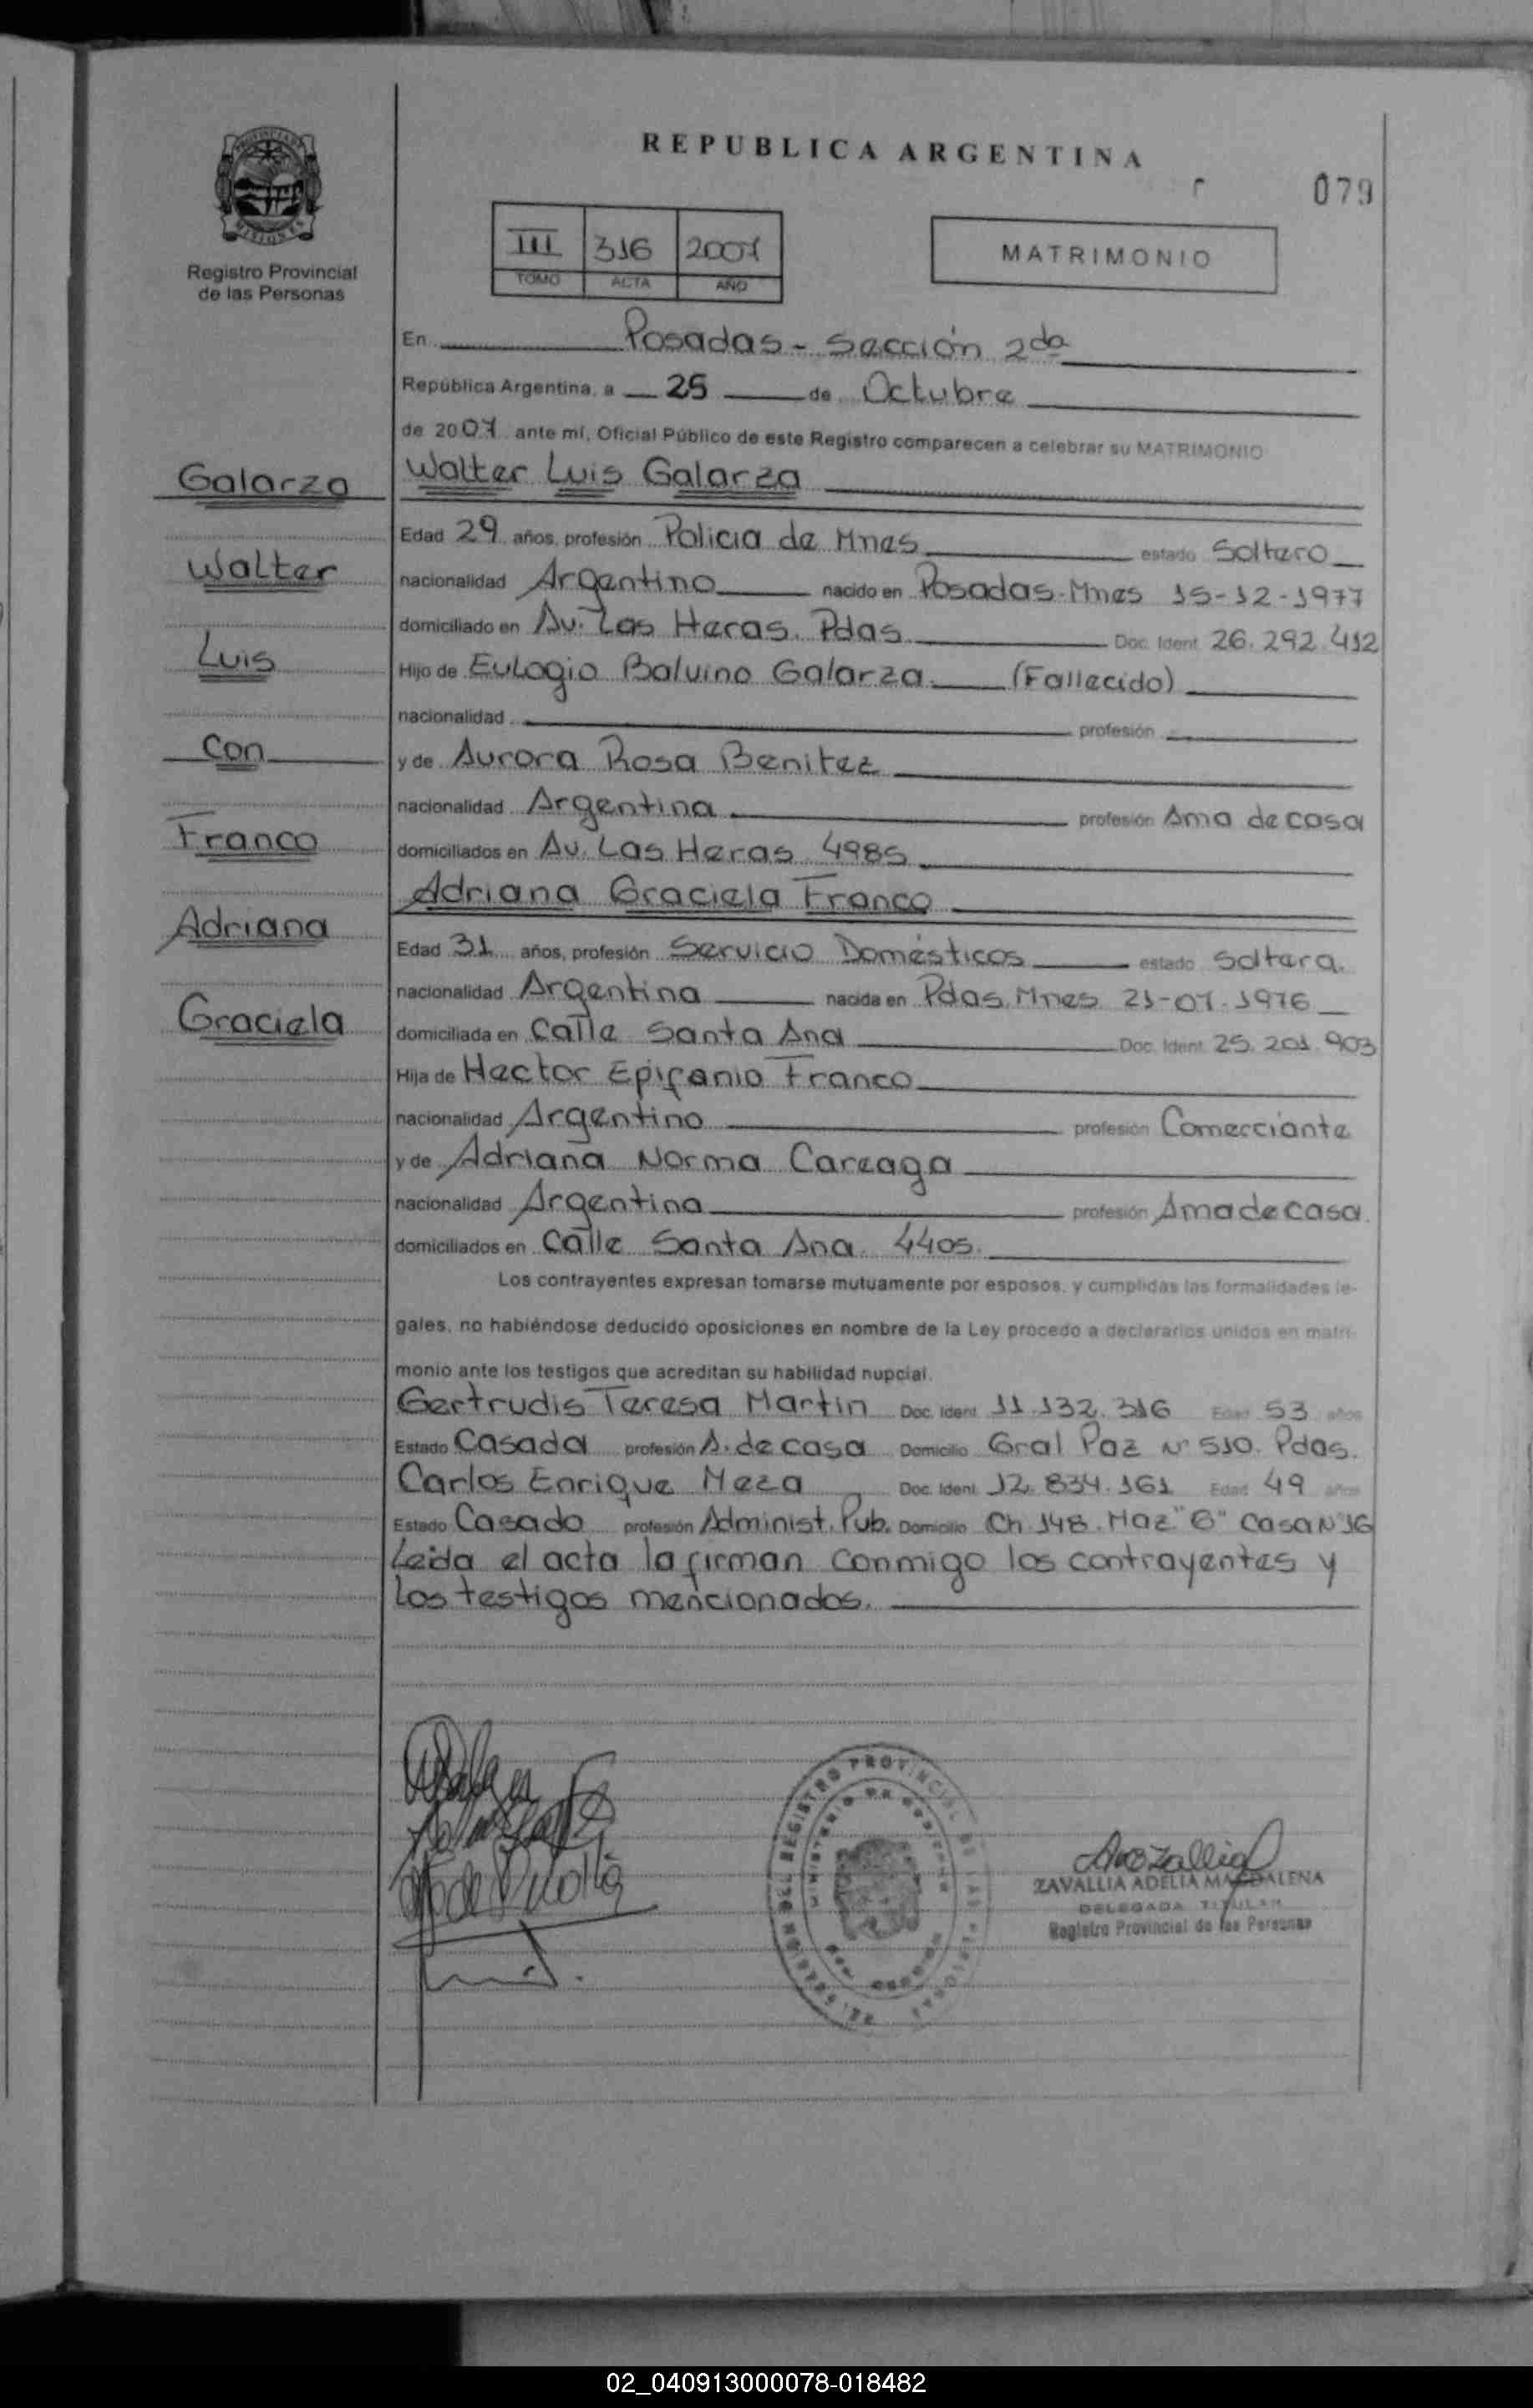 REPUBLICA ARGENTINA
079
Registro Provincial
de las Personas
III 316 2007
TOMO ACTA AÑO
MATRIMONIO
En Posadas - Sección 2da
República Argentina, a 25 de Octubre
de 2007 ante mí, Oficial Público de este Registro comparecen a celebrar su MATRIMONIO
Galarza
Walter Luis Galarza
Edad 29 años, profesión Policia de Mnes estado Soltero
Walter
nacionalidad Argentino nacido en Posadas-Mnes 15-12-1977
domiciliado en Av. Las Heras. Pdas Doc. Ident. 26.292.412
Luis
Hijo de Eulogio Balvino Galarza. (Fallecido)
nacionalidad profesión
Con
y de Aurora Rosa Benitez
nacionalidad Argentina profesión Ama de casa
Franco
domiciliados en Av. Las Heras 4985
Adriana Graciela Franco
Adriana
Edad 31 años, profesión Servicio Domésticos estado Soltera.
nacionalidad Argentina nacida en Pdas. Mnes. 21-07-1976
Graciela
domiciliada en Calle Santa Ana Doc. Ident. 25.201.903
Hija de Hector Epifanio Franco
nacionalidad Argentino profesión Comerciante
y de Adriana Norma Careaga
nacionalidad Argentina profesión Ama de casa.
domiciliados en Calle Santa Ana 4405.
Los contrayentes expresan tomarse mutuamente por esposos, y cumplidas las formalidades le-
gales, no habiéndose deducido oposiciones en nombre de la Ley procedo a declararlos unidos en matri-
monio ante los testigos que acreditan su habilidad nupcial.
Gertrudis Teresa Martin Doc. Ident. 11.132.316 Edad 53 años
Estado Casada profesión A. de casa Domicilio Gral Paz Nº 510. Pdas.
Carlos Enrique Meza Doc. Ident. 12.834.161 Edad 49 años
Estado Casado profesión Administ. Pub. Domicilio Ch 148. Maz "G" Casa Nº 16
Leida el acta la firman conmigo los contrayentes y
los testigos mencionados.
ZAVALLIA ADELIA MAGDALENA
DELEGADA TITULAR
Registro Provincial de las Personas
02_040913000078-018482